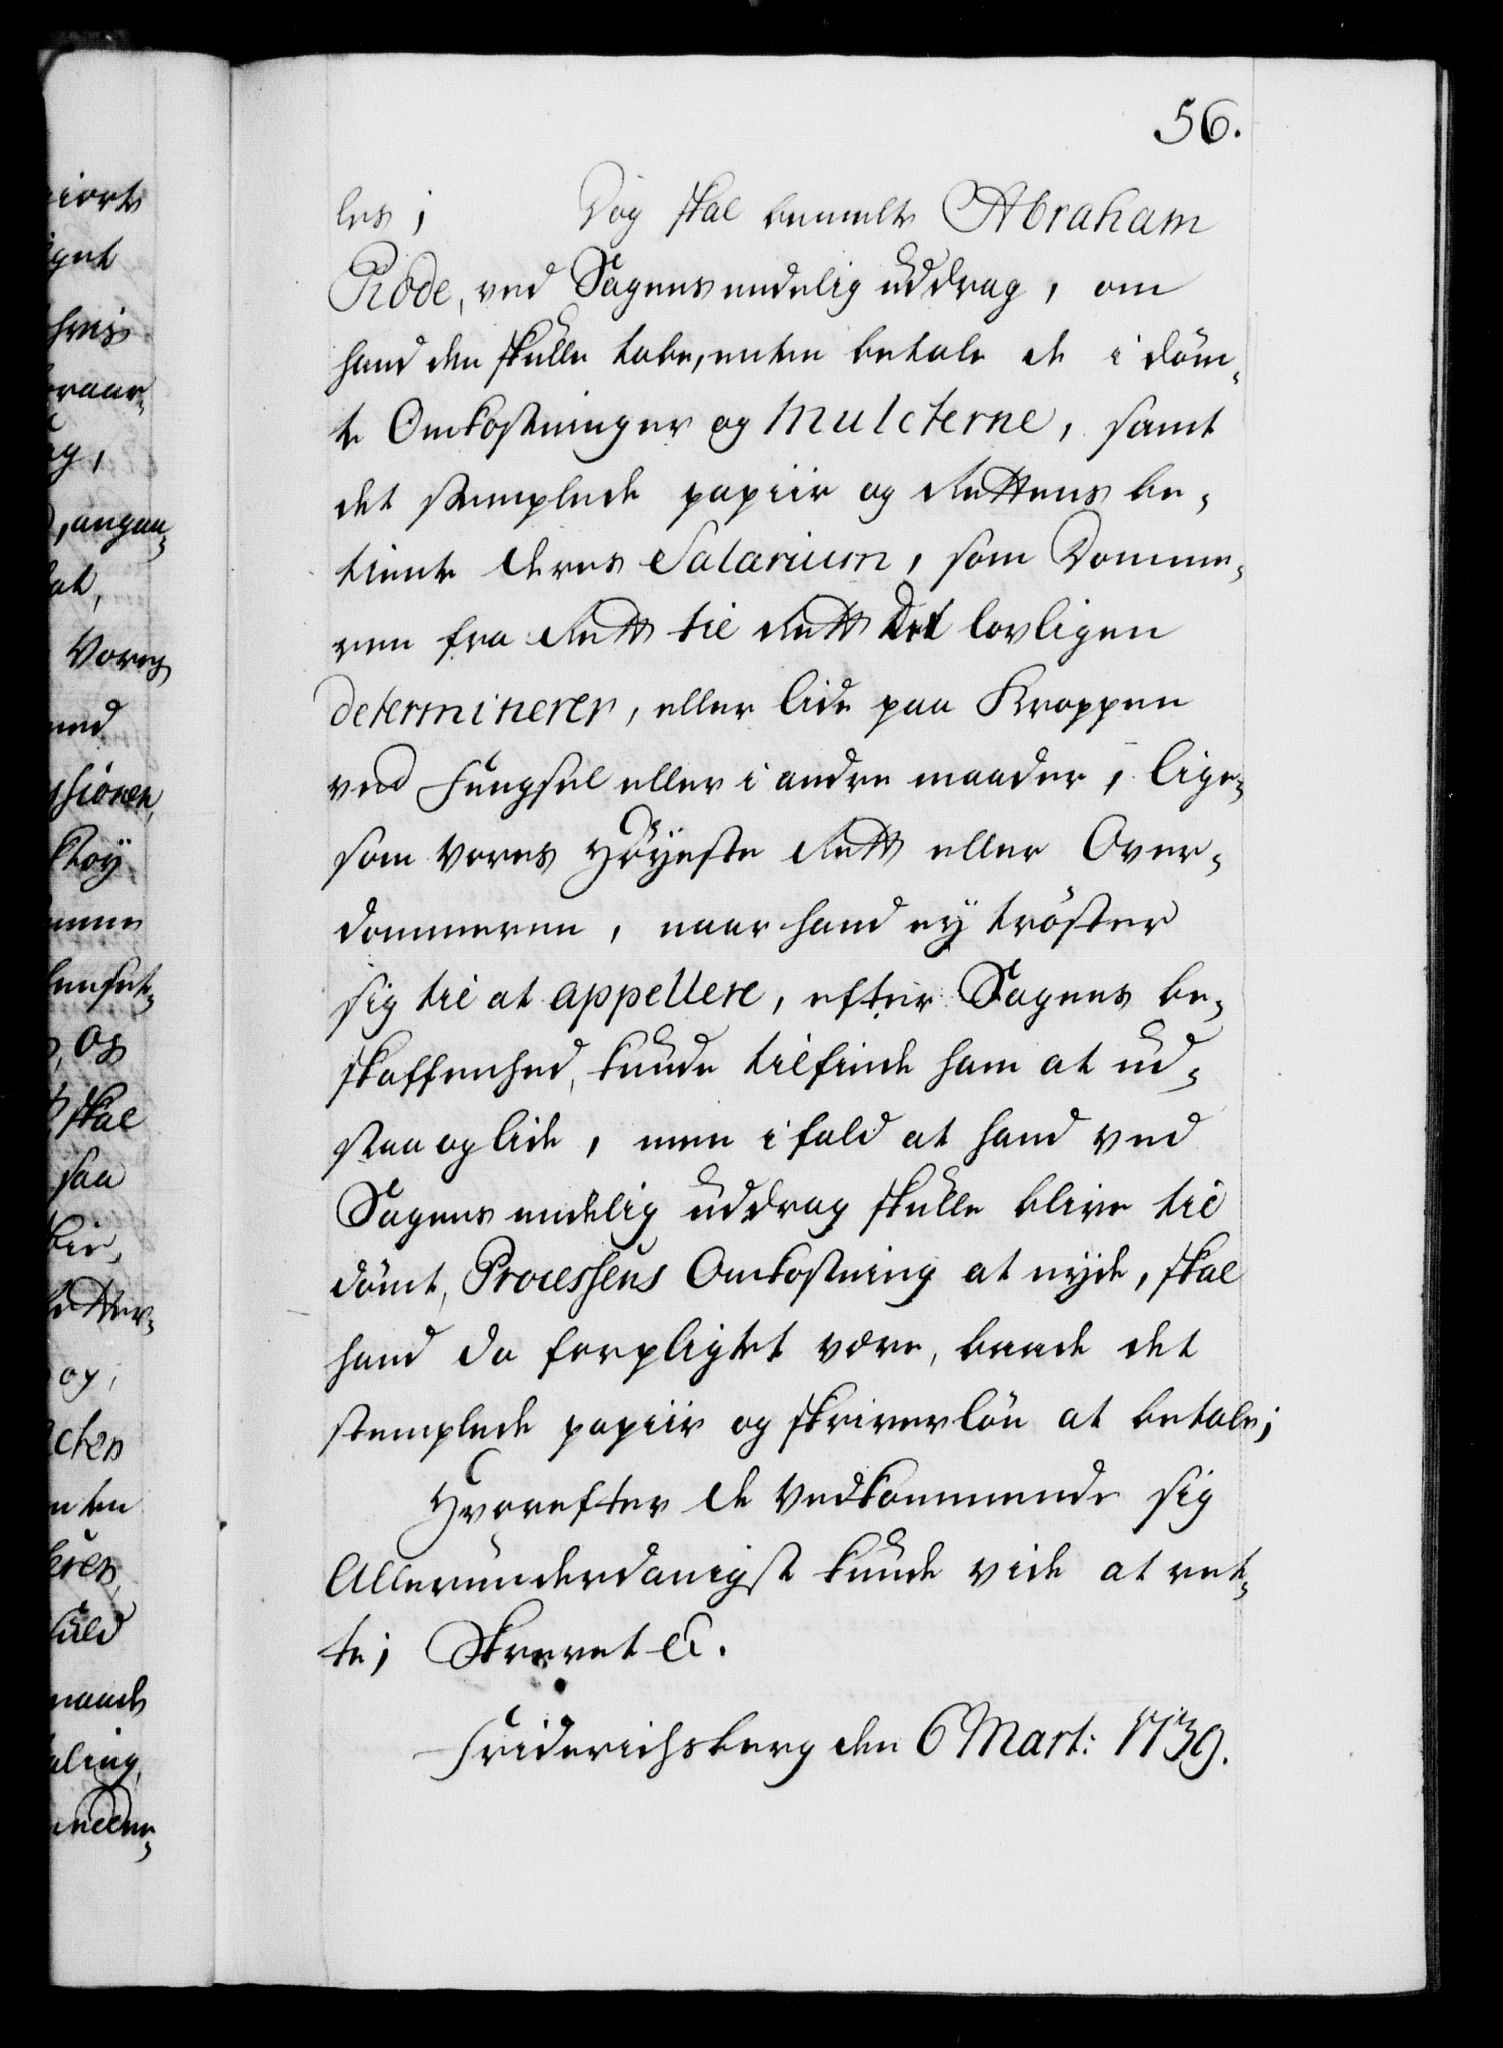 56.
les; Dog skal bemelte Abraham
Pröde, ved Sagens endelig uddrag, om
hand den skulle tabe, enten betale de i döm¬
te Omkostninger og Mulcterne, samt
det stemplede papiir og Rettens be¬
tiente deres Salarium, som Domme¬
ren fra Rett til Rett det lovligen
determinerer, eller lide paa Kroppen
ved Fengsel eller i andre maader, lige¬
som Vores Höyeste Rett eller Over¬
dommeren, naar hand ey tröster
sig til at appellere, efter Sagens be¬
skaffenhed, kunde tilfinde ham at ud¬
staa og lide, men i fald at hand ved
Sagens endelig uddrag skulle blive til
dömt, Processens Omkostning at nyde, skal
hand da forpligtet være, baade det
stemplede papiir og skriverlön at betale;
Hvorefter de Vedkommende sig
Allerunderdanigst kunde vide at ret¬
te; Skrevet &.
Friderichsberg den 6 Mart: 1739.